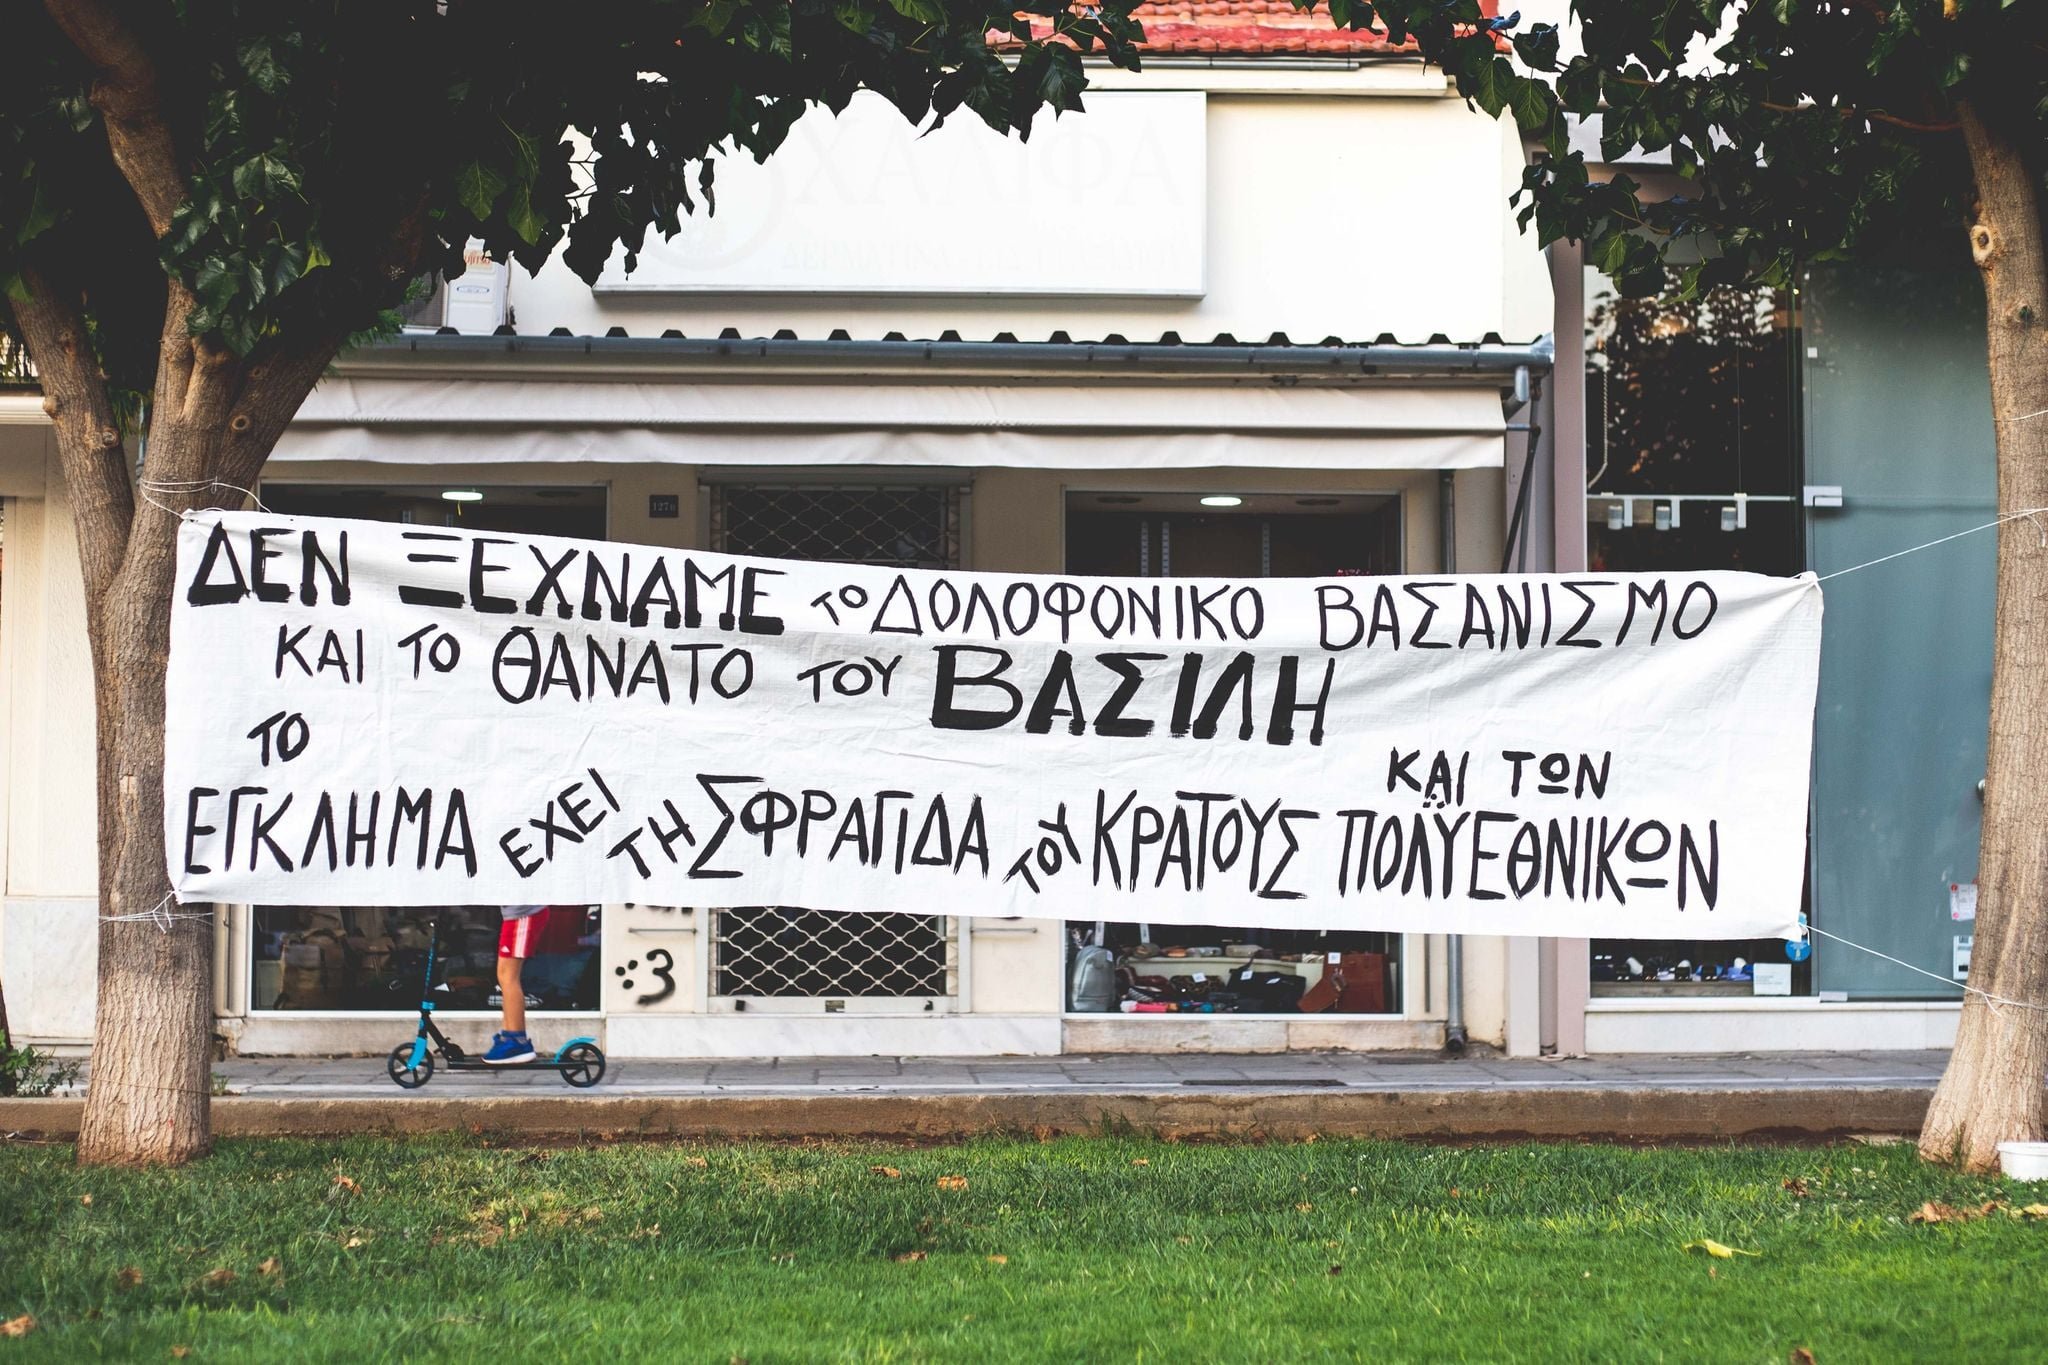 ΧΑΛΙΦΑ
ΔΕΡΜΑΤΙΝΑ
127α
ΔΕΝ ΞΕΧΝΑΜΕ ΤΟ ΔΟΛΟΦΟΝΙΚΟ ΒΑΣΑΝΙΣΜΟ
ΚΑΙ ΤΟ ΘΑΝΑΤΟ ΤΟΥ ΒΑΣΙΛΗ
ΤΟ
ΕΓΚΛΗΜΑ ΕΧΕΙ ΤΗ ΣΦΡΑΓΙΔΑ ΤΟΥ ΚΡΑΤΟΥΣ ΚΑΙ ΤΩΝ
ΠΟΛΥΕΘΝΙΚΩΝ
:3